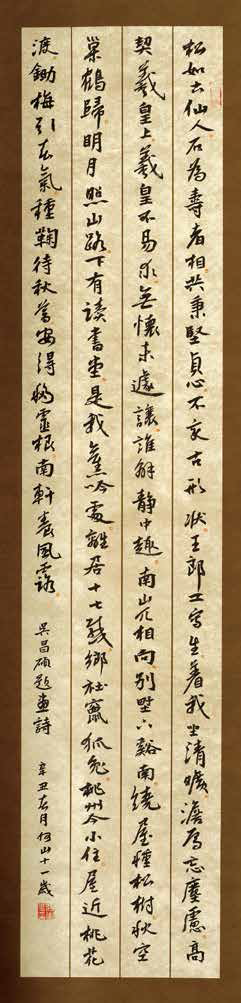 松如古仙人石為壽者相共秉堅貞心不古形狀王郎工寫生著我坐清曠澹焉忘塵慮高
契羲皇上羲皇不易求無懷未遽讓誰解靜中趣南山兀相向別墅六谿南繞屋種松樹秋空
巢鶴歸明月照山路下有读書堂是我舊吟處離居十七載鄉社竄狐兔桃州今小住屋近桃花
渡鋤梅引春氣種鞠待秋暮安得移靈根南軒養風露
吳昌碩题畫詩
辛丑春月何山十一歲